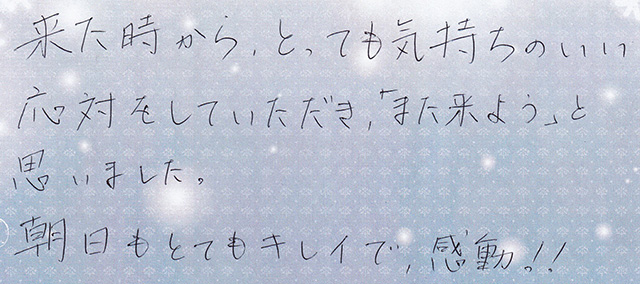 来た時から、とっても気持ちのいい
応対をしていただき、「また来よう」と
思いました。
朝日もとてもキレイで、感動っ!!